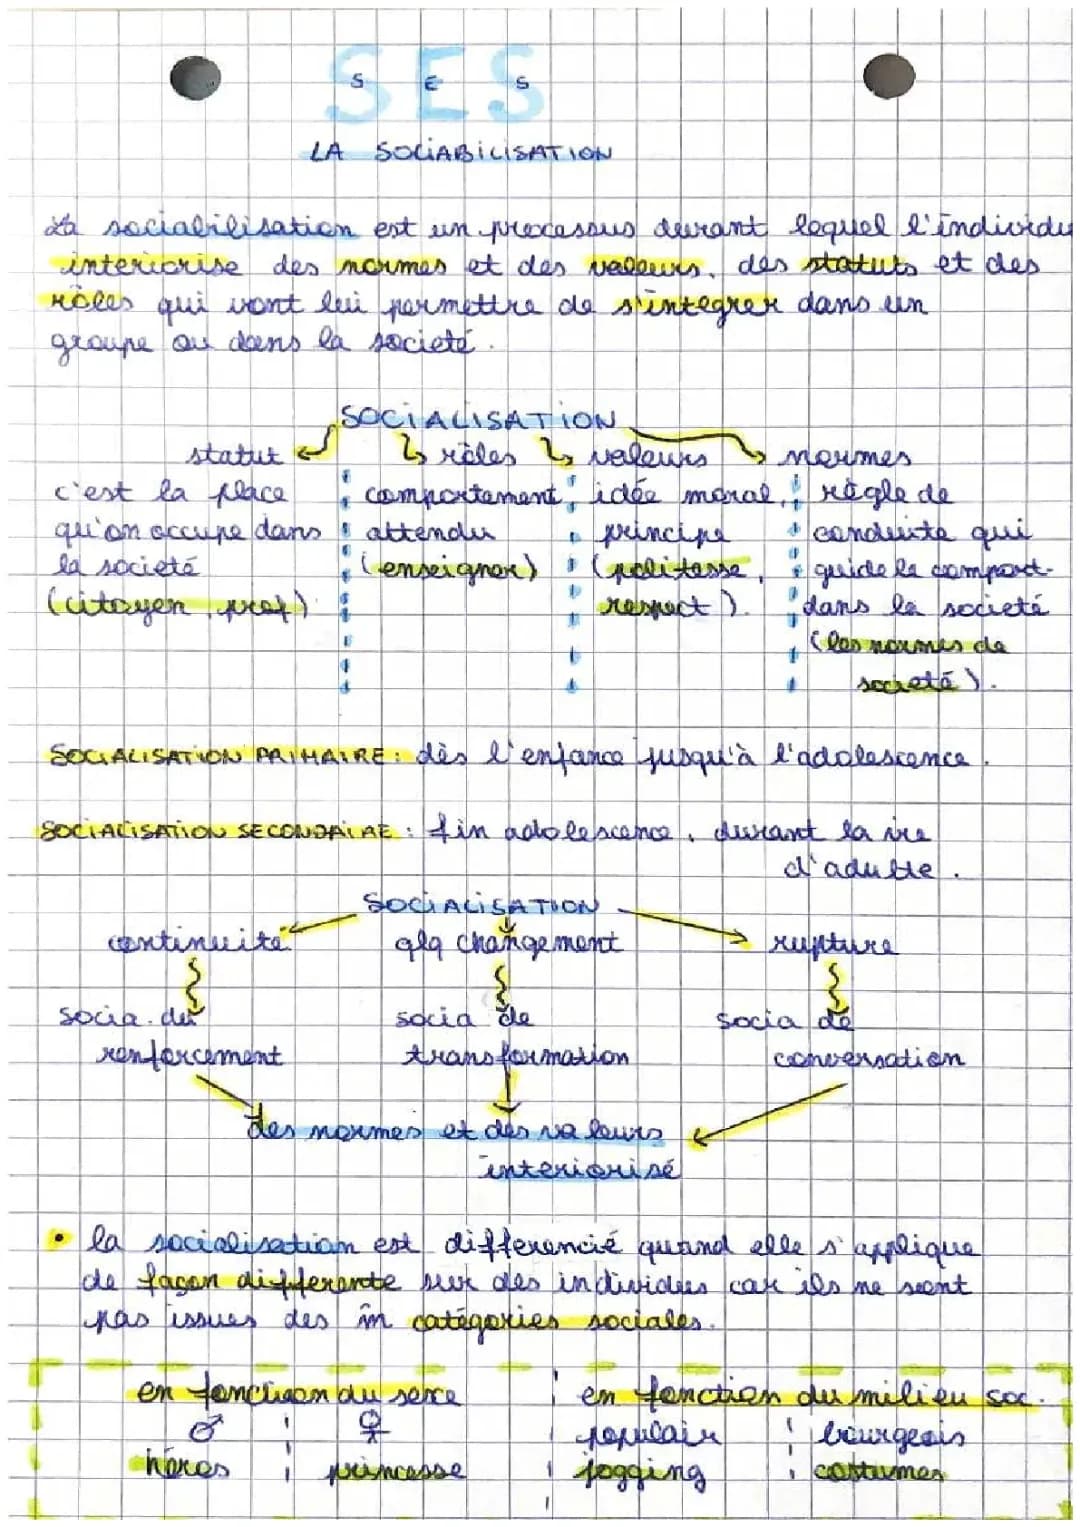 SES
S E S
LA SOCIABILISATION
La sociabilisation est un processus durant lequel l'individu
interiorise des normes et des valeurs, des statuts et des
rôles qui vont lui permettre de s'intégrer dans un
groupe ou dans la societé.
SOCIALISATION
statut rôles valeurs normes
c'est la place comportement idée moral, règle de
qu'on occupe dans attendu principe conduite qui
la societé (enseigner) (politesse, guide le comport.
(citoyen, prof) respect). dans la societé
(les normes de
societé).
SOCIALISATION PRIMAIRE : dès l'enfance jusqu'à l'adolescence.
SOCIALISATION SECONDAIRE : fin adolescence, durant la vie
d'adulte.
SOCIALISATION
continuité qlq changement rupture
socia. de socia de socia de
renforcement transformation conversation
des normes et des valeurs
interiorisé
• la socialisation est differencié quand elle s'applique
de façon differente sur des individus car ils ne sont
pas issues des m̂ catégories sociales.
en fonction du sexe en fonction du milieu soc.
♂ ♀ populair bourgeois
héros princesse jogging costumes